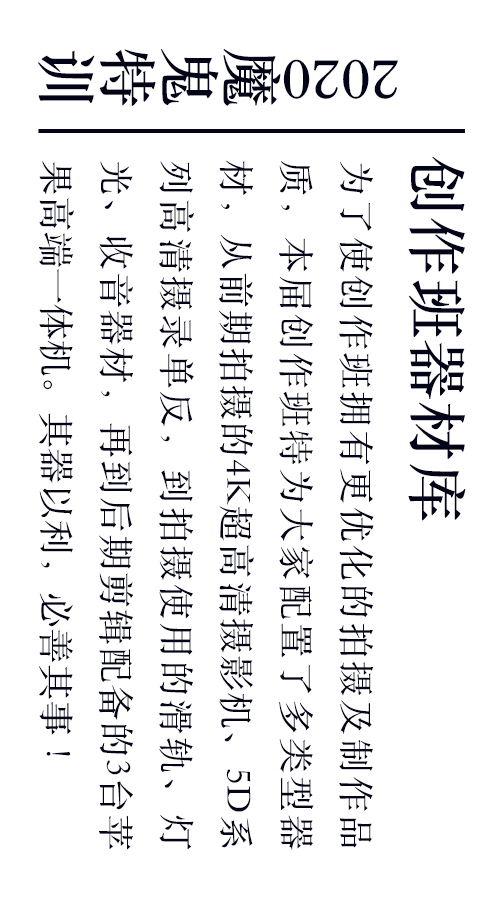 2020魔鬼特训
创作班器材库
为了使创作班拥有更优化的拍摄及制作品
质，本届创作班特为大家配置了多类型器
材，从前期拍摄的4K超高清摄影机、5D系
列高清摄录单反，到拍摄使用的滑轨、灯
光、收音器材，再到后期剪辑配备的3台苹
果高端一体机。其器以利，必善其事！